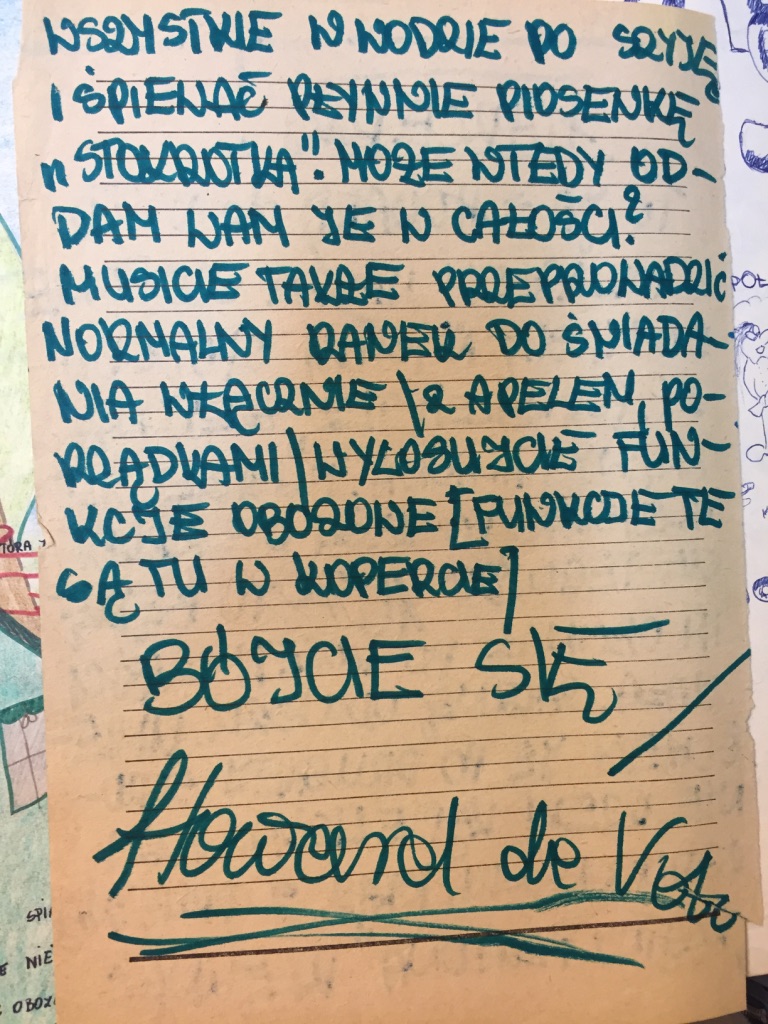 WSZYSTKIE W WODZIE PO SZYJĘ
I ŚPIEWAĆ PŁYNNIE PIOSENKĘ
„STOKROTKA". MOŻE WTEDY OD-
DAM WAM JE W CAŁOŚCI?
MUSICIE TAKŻE PRZEPROWADZIĆ
NORMALNY RANEK DO ŚNIADA-
NIA WŁĄCZNIE /Z APELEM, PO-
RZĄDKAMI/ WYLOSUJCIE FUN-
KCJE OBOZOWE [FUNKCJE TE
SĄ TU W KOPERCIE]
BÓJCIE SIĘ
Howard de
SPI
E NIE
OBOZ